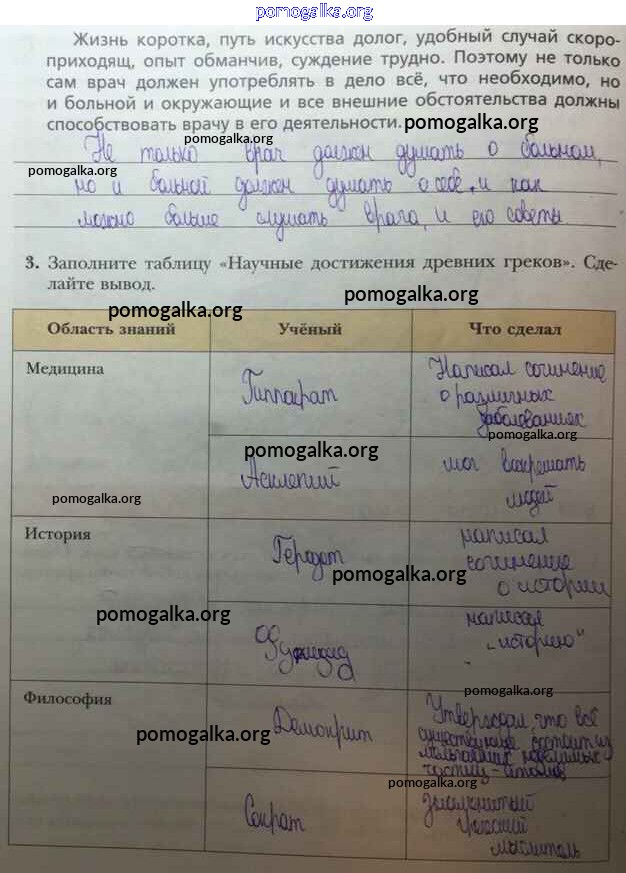 pomogalka.org
Жизнь коротка, путь искусства долог, удобный случай скоро-
приходящ, опыт обманчив, суждение трудно. Поэтому не только
сам врач должен употреблять в дело всё, что необходимо, но
и больной и окружающие и все внешние обстоятельства должны
способствовать врачу в его деятельности. pomogalka.org
pomogalka.org
Не только врач должен думать о больном,
pomogalka.org
но и больной должен думать о себе, и как
можно больше слушать врача, и его советы
3. Заполните таблицу «Научные достижения древних греков». Сде-
лайте вывод.
pomogalka.org
pomogalka.org
Область знаний Учёный Что сделал
Медицина Гиппократ Написал сочинение
о различных
заболеваниях
pomogalka.org
pomogalka.org
Асклепий мог воскрешать
людей
pomogalka.org
История Геродот написал
сочинение
о истории
pomogalka.org
pomogalka.org
Фукидид написал
„историю"
pomogalka.org
Философия Демокрит Утверждал, что всё
существующее состоит из
мельчайших неделимых
частиц - атомов
pomogalka.org
pomogalka.org
Сократ знаменитый
греческий
мыслитель